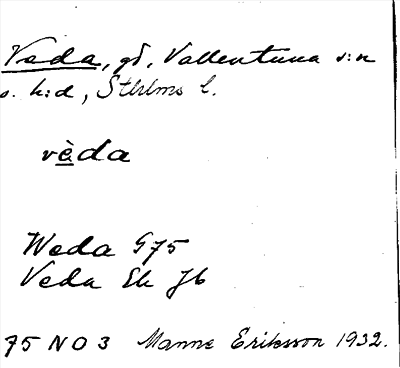 Veda, gd, Vallentuna s:n
o. h:d, Sthlms l.
vèda
Weda G75
Veda Ek Jb
75 N O 3 Manne Eriksson 1932.